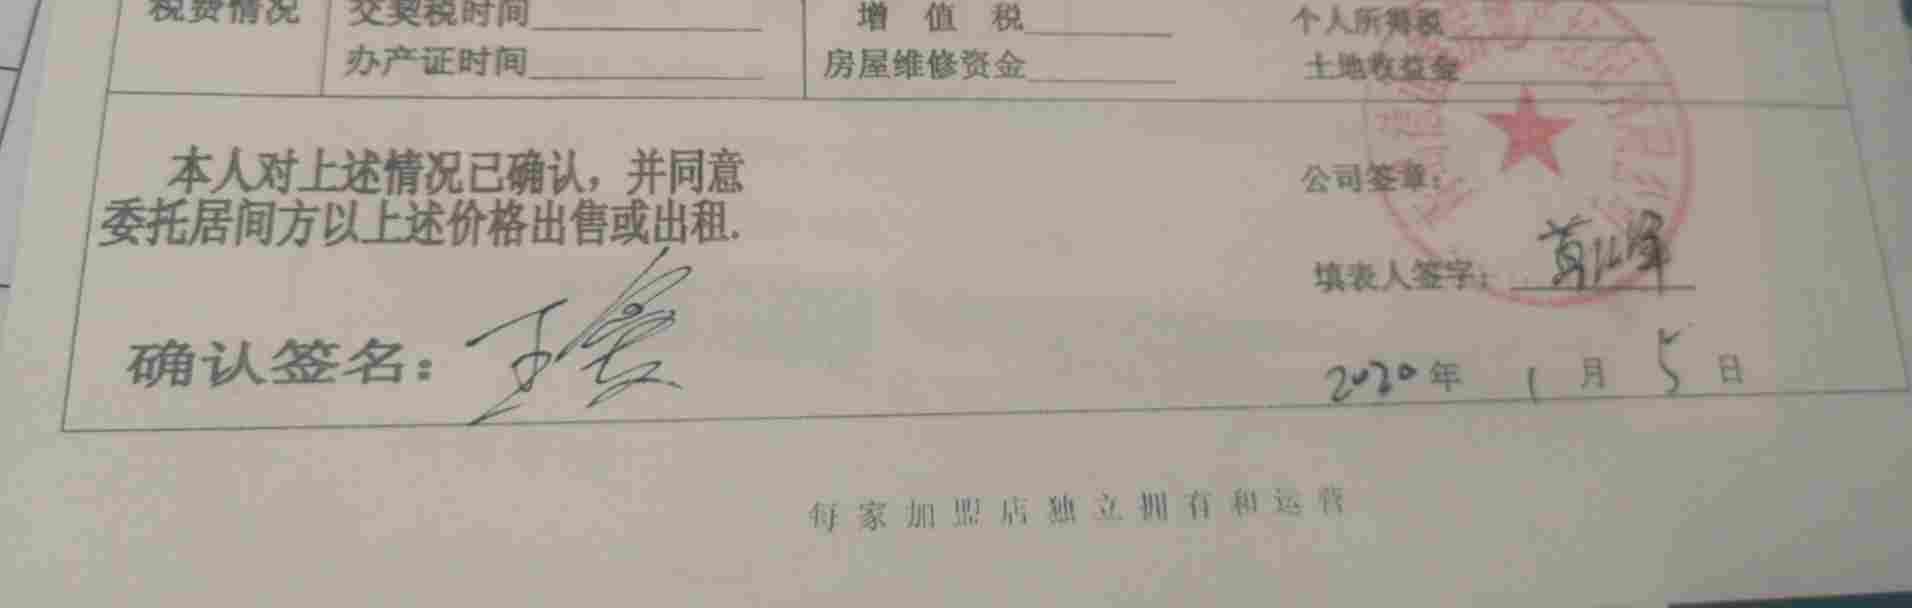 税费情况
交契税时间
增 值 税
个人所得税
办产证时间
房屋维修资金
土地收益金
本人对上述情况已确认，并同意
委托居间方以上述价格出售或出租.
公司签章：
填表人签字：
确认签名：王
2020年 1 月 5 日
每家加盟店独立拥有和运营